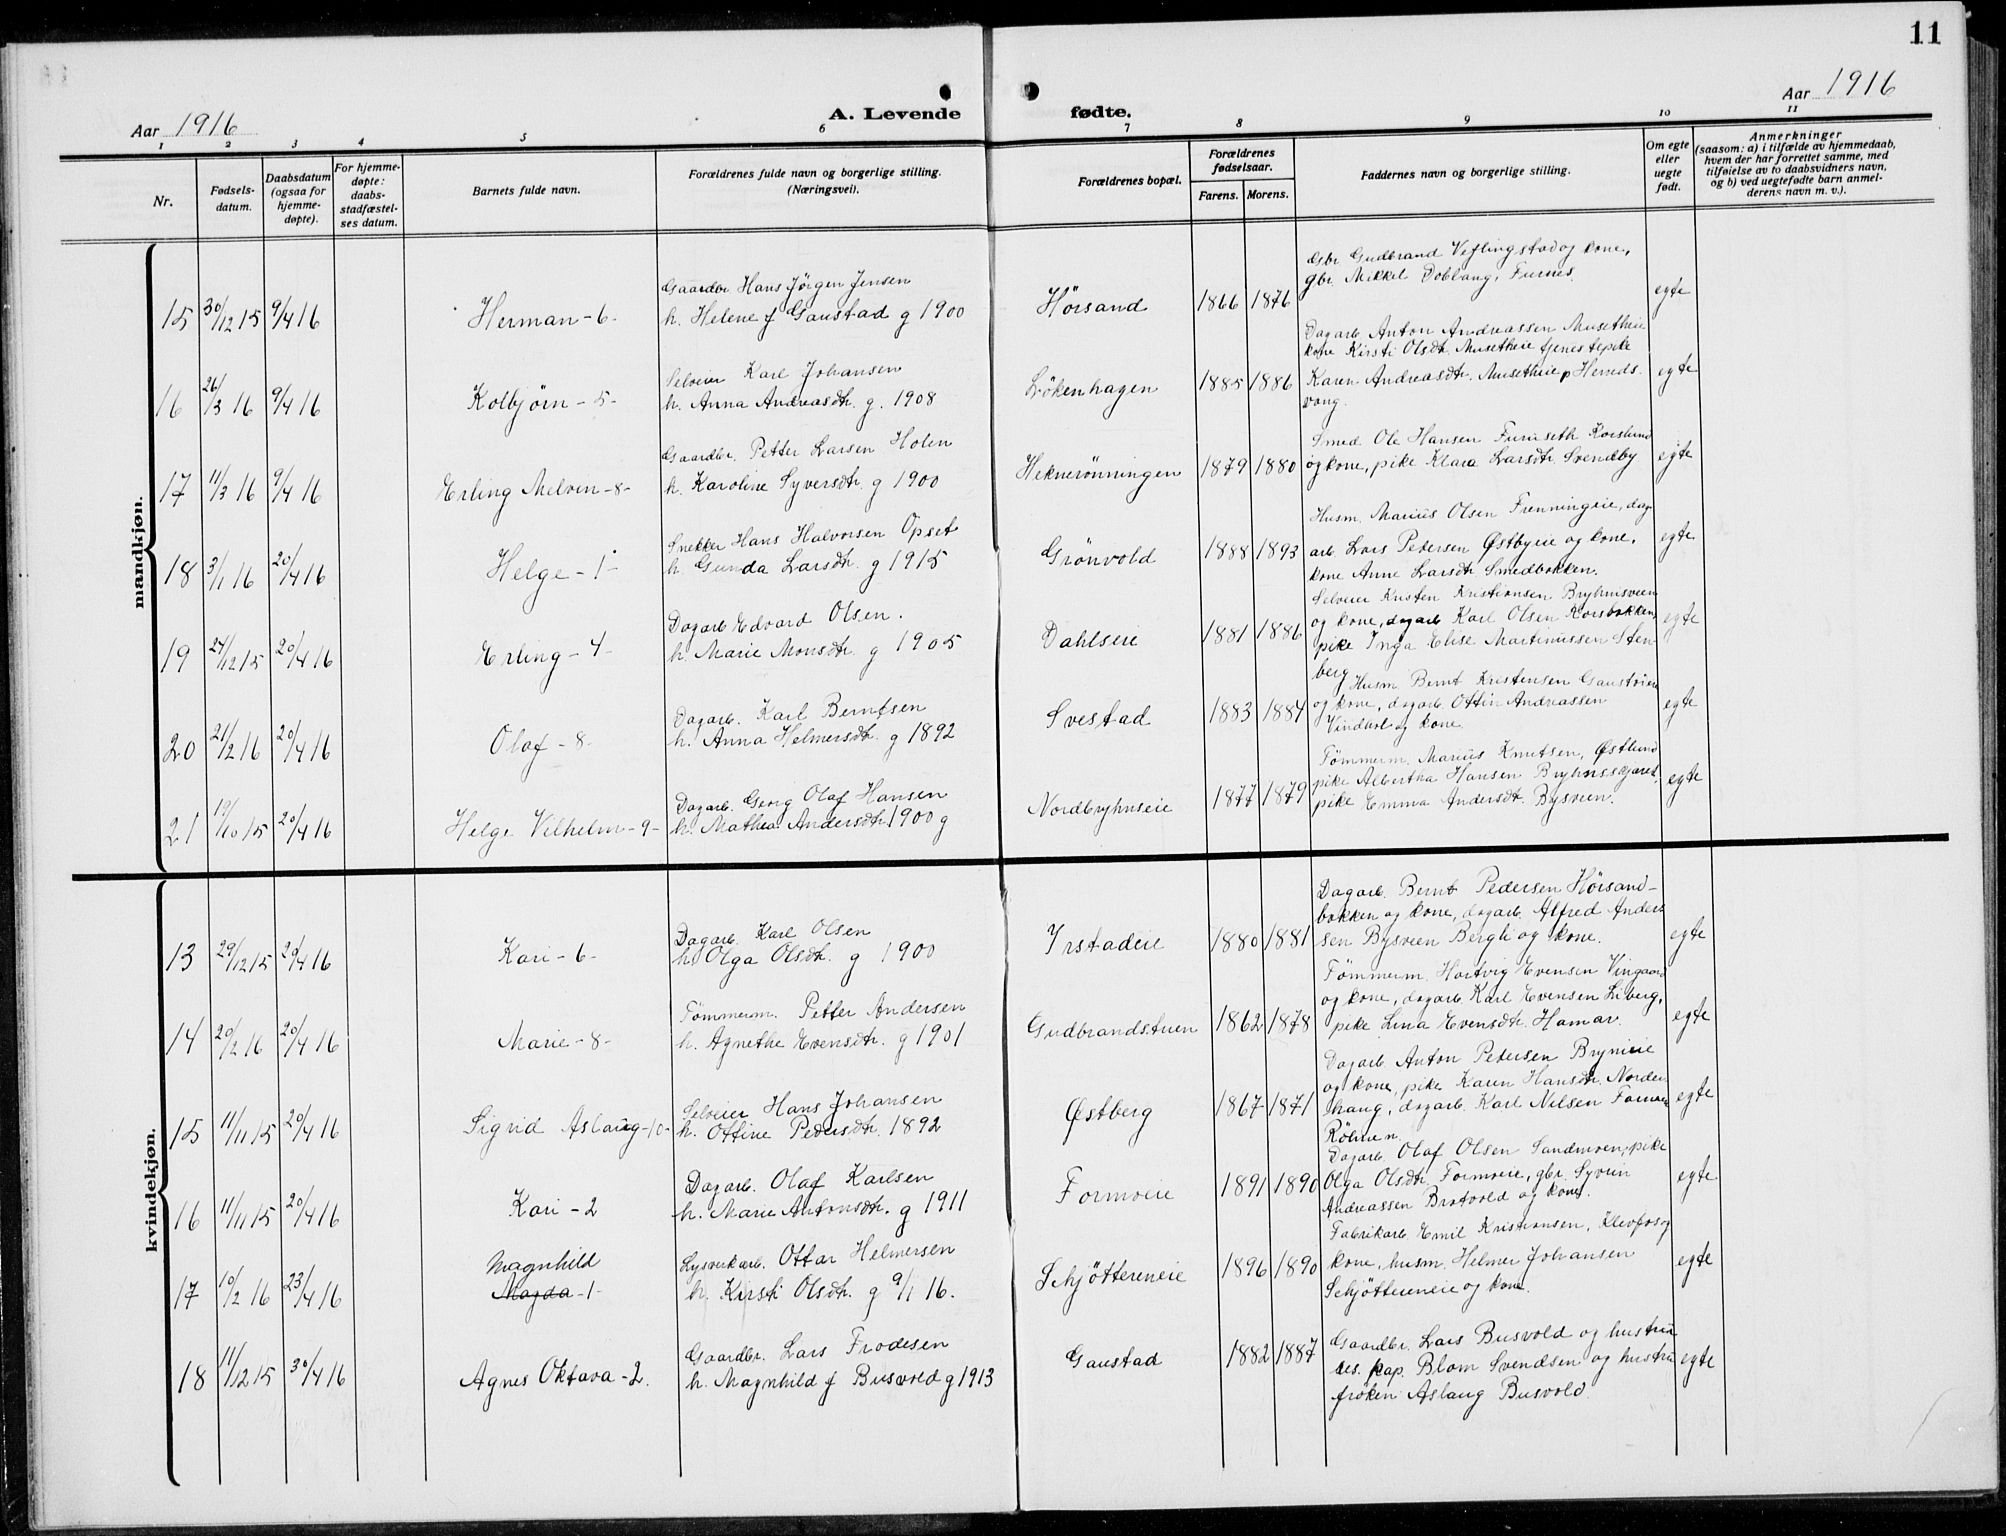 11
Aar 1916
A. Levende fødte.
Aar 1916
1 2 3 4 5 6 7 8 9 10 11
Nr.
Fødsels-
datum.
Daabsdatum
(ogsaa for
hjemme-
døpte).
For hjemme-
døpte:
daabs-
stadfæstel-
ses datum.
Barnets fulde navn.
Forældrenes fulde navn og borgerlige stilling.
(Næringsvei).
Forældrenes bopæl.
Forældrenes
fødselsaar.
Farens. Morens.
Faddernes navn og borgerlige stilling.
Om egte
eller
uegte
født.
Anmerkninger
(saasom: a) i tilfælde av hjemmedaab,
hvem der har forrettet samme, med
tilføielse av to daabsvidners navn,
og b) ved uegtefødte barn anmel-
derens navn m. v.).
mandkjøn.
15 30/12 15 9/4 16 Herman - 6 -
Gaardbr. Hans Jörgen Jensen
h. Helene f Gaustad g 1900
Hörsand 1866 1876
Gbr Gudbrand Veflingstad og kone,
gbr. Mikkel Doblaug, Furnes.
egte
16 26/3 16 9/4 16 Kolbjörn - 5 -
Selveier Karl Johansen
h. Anna Andreasdtr. g. 1908
Lökenhagen 1885 1886
Dagarb. Anton Andreassen Musetheie
kone Kirsti Olsdtr. Musetheie tjenestepike
Karen Andreasdtr. Musetheie p Herreds-
vang.
egte
17 11/3 16 9/4 16 Erling Melvin - 8 -
Gaardbr. Petter Larsen Holen
h. Karoline Syversdtr. g 1900
Heknerönningen 1879 1880
Smed Ole Hansen Furuseth Korslund
og kone, pike Klara Larsdtr. Svendby
egte
18 3/1 16 20/4 16 Helge - 1 -
Snekker Hans Halvorsen Opset
h. Gunda Larsdtr. g 1915
Grönvold 1888 1893
Husm. Marius Olsen Frenningeie, dag
arb. Lars Pedersen Østbyeie og kone,
kone Anne Larsdtr Smedbakken.
egte
19 24/12 15 20/4 16 Erling - 4 -
Dagarb Edvard Olsen.
h. Marie Monsdtr. g 1905
Dahlseie 1881 1886
Selveier Kristen Kristiansen Bryhnisveen
og kone, dagarb Karl Olsen Korsbakken,
pike Inga Elise Martinussen Sten
berg
egte
20 21/2 16 20/4 16 Olaf - 8 -
Dagarb. Karl Berntsen
h. Anna Helmersdtr. g 1892
Svestad 1883 1884
Husm. Bernt Kristensen
og kone, dagarb. Ottin Andreassen
og kone
egte
21 19/10 15 20/4 16 Helge Vilhelm - 9 -
Dagarb. Georg Olaf Hansen
h. Mathea Andersdtr 1900 g
Nordbryhnseie 1877 1879
Tömmerm. Marius Knutsen, Østlund
pike Albertha Hansen
pike Emma Andersdtr. Bysveen.
egte
kvindekjøn.
13 29/12 15 20/4 16 Kari - 6 -
Dagarb. Karl Olsen
h. Olga Olsdtr. g 1900
Irstadeie 1880 1881
Dagarb. Bernt Pedersen Hörsand-
bakken og kone, dagarb. Alfred Anders
sen Bysveen Bergli og kone.
egte
14 20/2 16 20/4 16 Marie - 8 -
Tömmerm. Petter Andersen
h. Agnethe Evensdtr. g 1901
Gudbrandstuen 1862 1878
Tömmerm. Hartvig Evensen Vingaard
og kone, dagarb Karl Evensen Liberg,
pike Lina Evensdtr. Hamar.
egte
15 11/11 15 20/4 16 Sigrid Aslaug - 10 -
Selveier Hans Johansen
h. Ottine Pedersdtr. 1892
Østberg 1867 1871
Dagarb Anton Pedersen Brynieie
og kone, pike Karen Hansdtr. Norden
haug, dagarb. Karl Nilsen

egte
16 11/11 15 20/4 16 Kari - 2
Dagarb. Olaf Karlsen
h. Marie Antonsdtr. g 1911
Formoeie 1891 1890
Dagarb Olaf Olsen Sandmoen, pike
Olga Olsdtr. Formoeie, gbr. Syvein
Andreassen Bratvold og kone.
egte
17 10/2 16 23/4 16 Magnhild
Magda - 1 -
Lysverkarb. Ottar Helmersen
h. Kirsti Olsdtr. g 9/1 16.
Schjöttereneie 1896 1890
Fabrikarb Emil Kristiansen, Klevfos og
kone, husm. Helmer Johansen
Schjöttereneie og kone.
egte
18 11/12 15 30/4 16 Agnes Oktava - 2.
Gaardbr. Lars Frodesen
h. Magnhild f Busvold g 1913
Gaustad 1882 1887
Gaardbr. Lars Busvold og hustru
res. kap. Blom Svendsen og hustru
fröken Aslaug Busvold.
egte